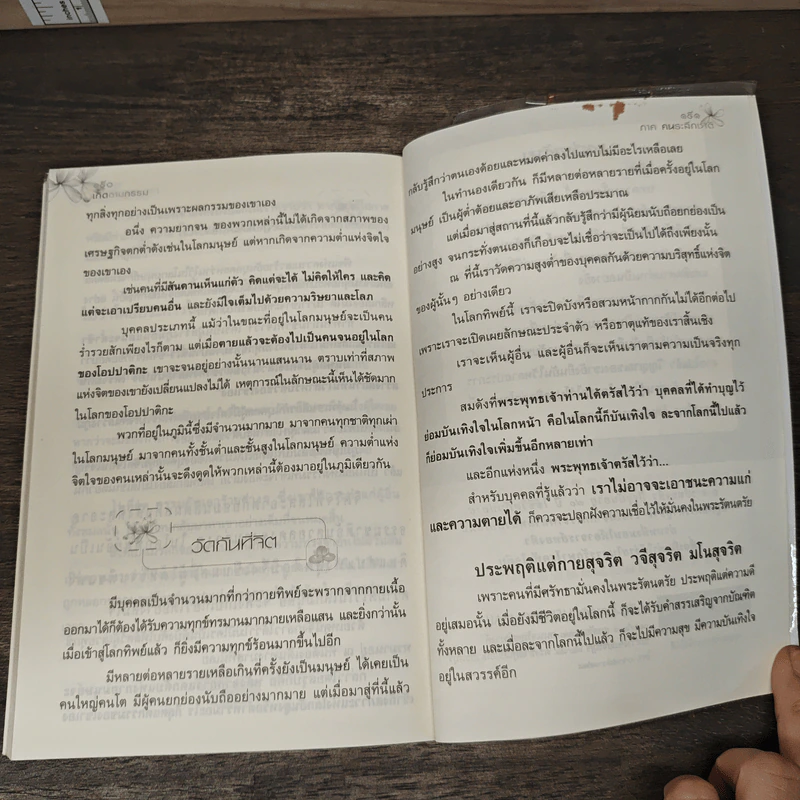 เกิดตามกรรม
ทุกสิ่งทุกอย่างเป็นเพราะผลกรรมของเขาเอง
อนึ่ง ความยากจน ของพวกเหล่านี้ไม่ได้เกิดจากสภาพของ
เศรษฐกิจตกต่ำดังเช่นในโลกมนุษย์ แต่หากเกิดจากความต่ำแห่งจิตใจ
ของเขาเอง
เช่นคนที่มีสันดานเห็นแก่ตัว คิดแต่จะได้ ไม่คิดให้ใคร และคิด
แต่จะเอาเปรียบคนอื่น และยังมีใจเต็มไปด้วยความริษยาและโลภ
บุคคลประเภทนี้ แม้ว่าในขณะที่อยู่ในโลกมนุษย์จะเป็นคน
ร่ำรวยสักเพียงไรก็ตาม แต่เมื่อตายแล้วจะต้องไปเป็นคนจนอยู่ในโลก
ของโอปปาติกะ เขาจะจนอยู่อย่างนั้นนานแสนนาน ตราบเท่าที่สภาพ
แห่งจิตของเขายังเปลี่ยนแปลงไม่ได้ เหตุการณ์ในลักษณะนี้เห็นได้ชัดมาก
ในโลกของโอปปาติกะ
พวกที่อยู่ในภูมินี้ซึ่งมีจำนวนมากมาย มาจากคนทุกชาติทุกเผ่า
ในโลกมนุษย์ มาจากคนทั้งชั้นต่ำและชั้นสูงในโลกมนุษย์ ความต่ำแห่ง
จิตใจของคนเหล่านั้นจะดึงดูดให้พวกเหล่านี้ต้องมาอยู่ในภูมิเดียวกัน
วัดกันที่จิต
มีบุคคลเป็นจำนวนมากที่กว่ากายทิพย์จะพรากจากกายเนื้อ
ออกมาได้ก็ต้องได้รับความทุกข์ทรมานมากมายเหลือแสน และยิ่งกว่านั้น
เมื่อเข้าสู่โลกทิพย์แล้ว ก็ยิ่งมีความทุกข์ร้อนมากขึ้นไปอีก
มีหลายต่อหลายรายเหลือเกินที่ครั้งยังเป็นมนุษย์ ได้เคยเป็น
คนใหญ่คนโต มีผู้คนยกย่องนับถืออย่างมากมาย แต่เมื่อมาสู่ที่นี้แล้ว
ภาค คนระลึกชาติ
กลับรู้สึกว่าตนเองด้อยและหมดค่าลงไปแทบไม่มีอะไรเหลือเลย
ในทำนองเดียวกัน ก็มีหลายต่อหลายรายที่เมื่อครั้งอยู่ในโลก
มนุษย์ เป็นผู้ต่ำด้อยและอาภัพเสียเหลือประมาณ
แต่เมื่อมาสู่สถานที่นี้แล้วกลับรู้สึกว่ามีผู้นิยมนับถือยกย่องเป็น
อย่างสูง จนกระทั่งตนเองก็เกือบจะไม่เชื่อว่าจะเป็นไปได้ถึงเพียงนั้น
ณ ที่นี้เราวัดความสูงต่ำของบุคคลกันด้วยความบริสุทธิ์แห่งจิต
ของผู้นั้นๆ อย่างเดียว
ในโลกทิพย์นี้ เราจะปิดบังหรือสวมหน้ากากกันไม่ได้อีกต่อไป
เพราะเราจะเปิดเผยลักษณะประจำตัว หรือธาตุแท้ของเราสิ้นเชิง
เราจะเห็นผู้อื่น และผู้อื่นก็จะเห็นเราตามความเป็นจริงทุก
ประการ
สมดังที่พระพุทธเจ้าท่านได้ตรัสไว้ว่า บุคคลที่ได้ทำบุญไว้
ย่อมบันเทิงใจในโลกหน้า คือในโลกนี้ก็บันเทิงใจ ละจากโลกนี้ไปแล้ว
ก็ย่อมบันเทิงใจเพิ่มขึ้นอีกหลายเท่า
และอีกแห่งหนึ่ง พระพุทธเจ้าตรัสไว้ว่า...
สำหรับบุคคลที่รู้แล้วว่า เราไม่อาจจะเอาชนะความแก่
และความตายได้ ก็ควรจะปลูกฝังความเชื่อไว้ให้มั่นคงในพระรัตนตรัย
ประพฤติแต่กายสุจริต วจีสุจริต มโนสุจริต
เพราะคนที่มีศรัทธามั่นคงในพระรัตนตรัย ประพฤติแต่ความดี
อยู่เสมอนั้น เมื่อยังมีชีวิตอยู่ในโลกนี้ ก็จะได้รับคำสรรเสริญจากบัณฑิต
ทั้งหลาย และเมื่อละจากโลกนี้ไปแล้ว ก็จะไปมีความสุข มีความบันเทิงใจ
อยู่ในสวรรค์อีก